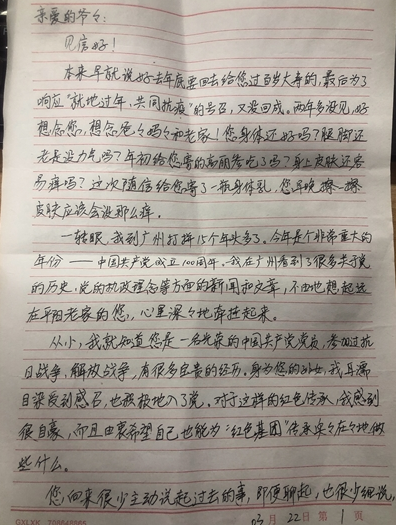 亲爱的爷爷:
见信好!
本来早就说好去年底要回去给您过百岁大寿的,最后为了
响应“就地过年,共同抗疫”的号召,又没回成。两年多没见,好
想念您,想念爸爸妈妈和老家!您身体还好吗?腿脚还
老是没力气吗?年初给您寄的高丽参吃了吗?身上皮肤还容
易痒吗?这次随信给您寄了一瓶身体乳,您早晚擦一擦
皮肤应该会没那么痒。
一转眼,我到广州打拼15个年头了。今年是个非常重大的
年份——中国共产党成立100周年。我在广州看到了很多关于党
的历史、党的执政理念等方面的新闻和文章,不由地想起远
在平阳老家的您,心里深深地牵挂起来。
从小,我就知道您是一名光荣的中国共产党党员,参加过抗
日战争、解放战争,有很多宝贵的经历。身为您的孙女,我耳濡
目染受到感召,也积极地入了党。对于这样的红色传承,我感到
很自豪,而且由衷希望自己也能为“红色基因”传承实实在在地做
些什么。
您向来很少主动说起过去的事,即便聊起,也很少细说,
GXLXK 708648066
03月22日第1页